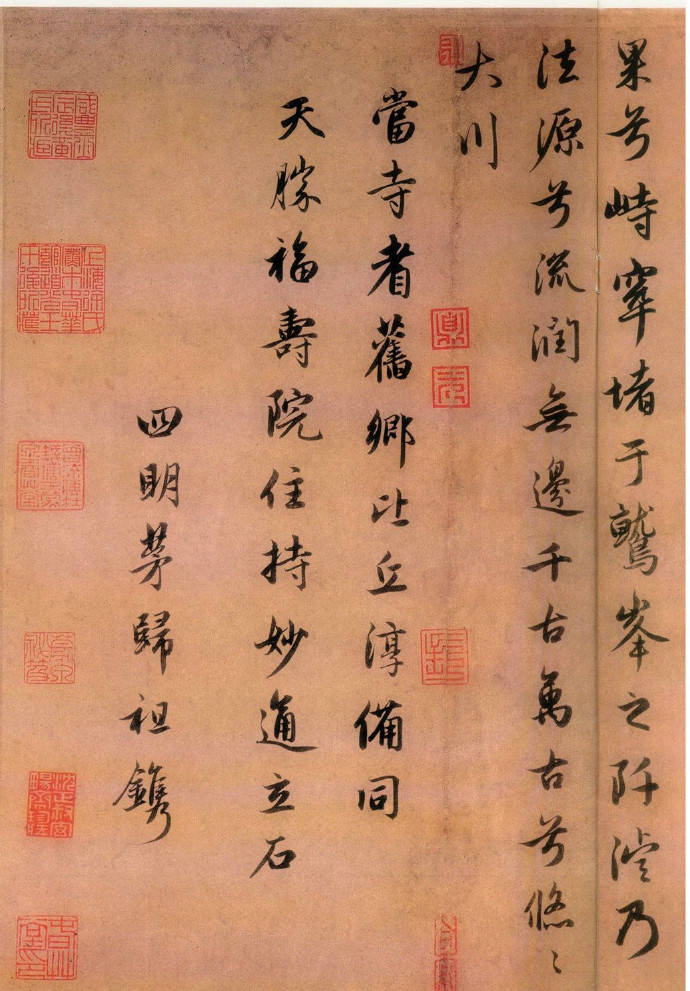 果兮峙窣堵于鷲峯之阡乃
法源兮流潤無邊千古萬古兮悠〻
大川
當寺耆舊鄉比丘淳備同
天勝福壽院住持妙通立石
四明茅歸祖鐫